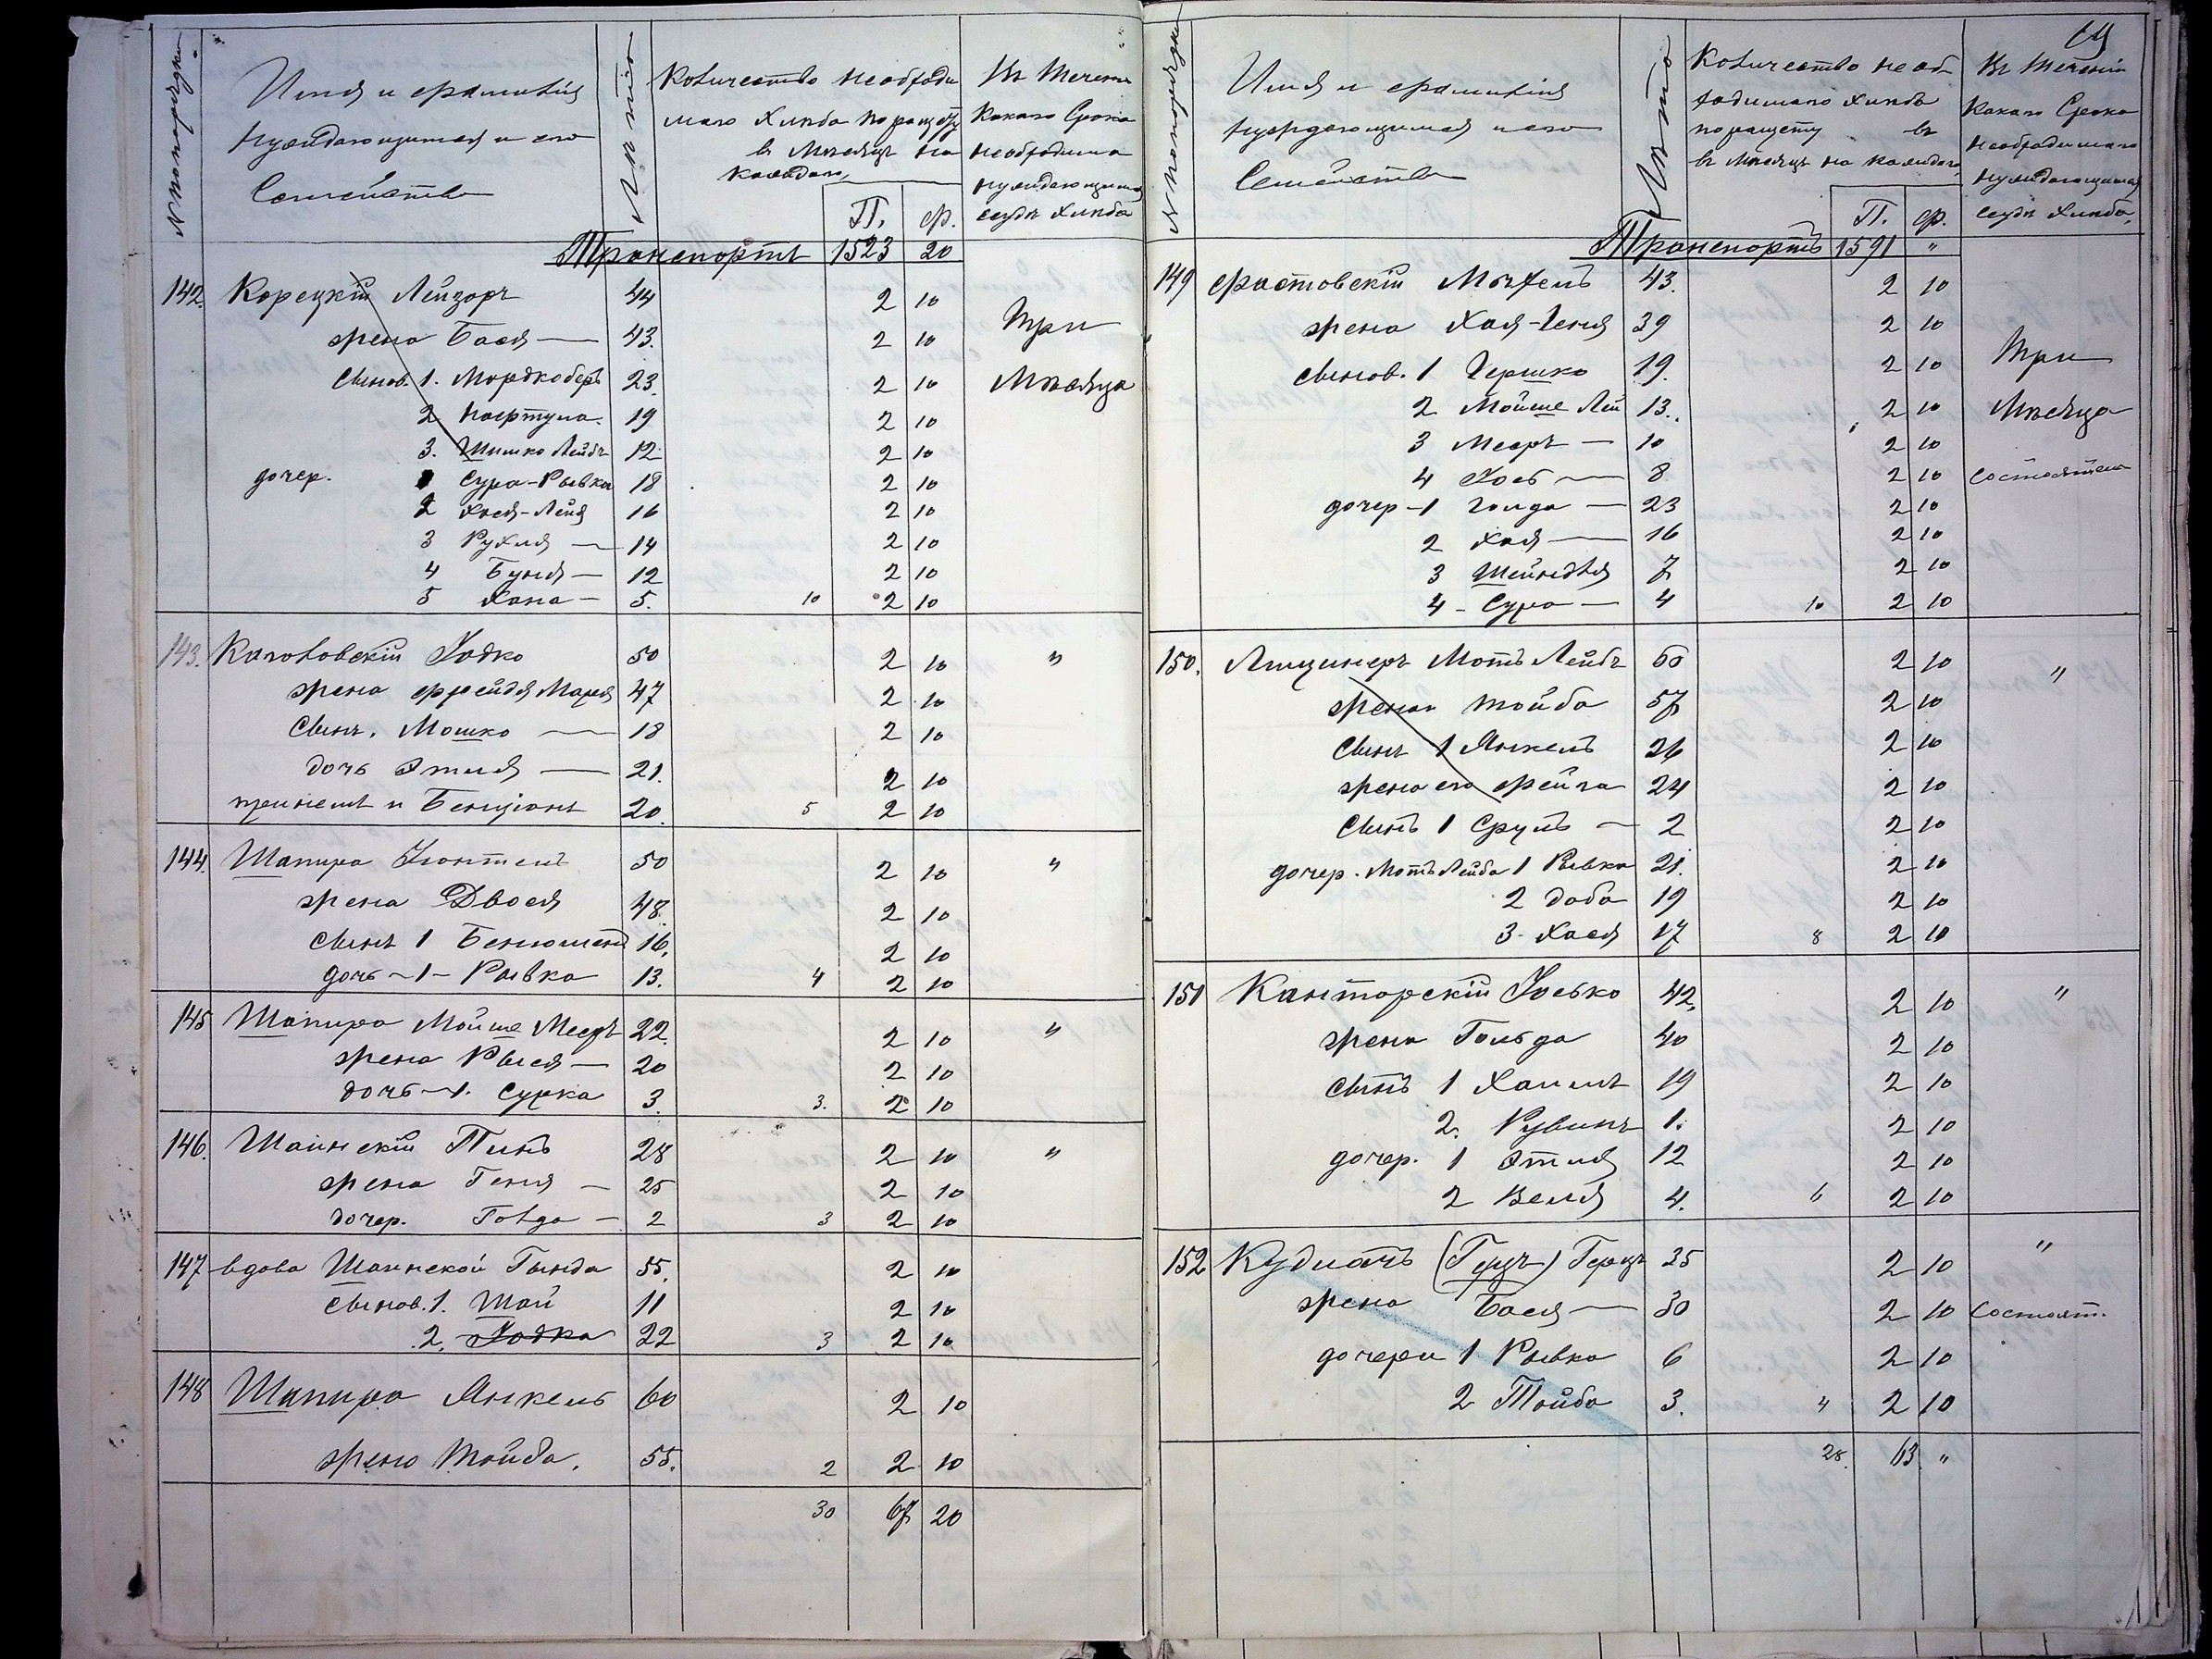 № по порядку
Имя и фамилія
нуждающимся и его
Семейства
Лѣта
Количество необходи
маго Хлѣба по расчету
в Мѣсяцъ на
каждаго
П. ф.
Въ Теченіи
Какаго Срока
необходима
нуждающимся
ссуда Хлѣба
Транспортъ 1523 20
142. Корецкій Лейзоръ 44 2 10
жена Бася — 43. 2 10 Три
сынов. 1. Мордкоберъ 23. 2 10 Мѣсяца
2 19 2 10
3. Лейбъ 12 2 10
дочер. Сура-Рывка 18 2 10
2 Хася-Лея 16 2 10
3 Рухля — 14 2 10
4 Буня — 12 2 10
5 Хана — 5. 10 2 10
143. Каголовскій Іодко 50 2 10 "
жена Фрейдя Маря 47 2 10
сынъ. Мошко — 18 2 10
дочь Этля — 21. 2 10
Бенціонъ 20. 5 2 10
144. Шапира Іонтель 50 2 10 "
жена Двося 48. 2 10
сынъ 1 16. 2 10
дочь – 1 – Рывка 13. 4 2 10
145 Шапира Мойше Мееръ 22. 2 10 "
жена Рыся — 20 2 10
дочь – 1. Сурка 3. 3. 2 10
146. Шаинскій Пинъ 28 2 10 "
жена Геня — 25 2 10
дочер. Голда — 2 3 2 10
147 вдова Шаинской Гинда 55. 2 10
сынов. 1. Шай 11 2 10
2. Іодка 22 3 2 10
148 Шапира Янкель 60 2 10
жена Тойба. 55. 2 2 10
30 67 20
№ по порядку
Имя и фамилія
нуждающимся и его
Семейства
Лѣта
Количество необ
ходимаго Хлѣба
по расчету въ
въ Мѣсяцъ на каждаго
П. ф.
Въ Теченіи
Какаго Срока
необходимаго
нуждающимся
ссуда Хлѣба,
Транспортъ 1591 "
149 Фастовскій Мехель 43. 2 10
жена Хая-Геня 39 2 10
сынов. 1 Гершко 19. 2 10 Три
2 Мойше Лей 13. 2 10 Мѣсяца
3 Мееръ — 10 2 10
4 Іось — 8 2 10
дочер – 1 Голда — 23 2 10
2 Хая — 16 2 10
3 Шейндля 7 2 10
4 – Сура — 4 10 2 10
150. Лищинеръ Моть Лейбъ 60 2 10 "
жена Тойба 57 2 10
сынъ 1 Янкель 26 2 10
жена его Фейга 24 2 10
сынъ 1 Сруль — 2 2 10
дочер. Моть Лейба 1 Рывка 21. 2 10
2 Доба 19 2 10
3. Хася 17 8 2 10
151 Канторскій Іосько 42. 2 10 "
жена Гольда 40 2 10
сынъ 1 Хаимъ 19 2 10
2. Рувинъ 1. 2 10
дочер. 1 Этля 12 2 10
2 Веля 4. 6 2 10
152 Кудлачъ (Герцъ) Герцъ 35 2 10 "
жена Бася — 30 2 10 состоят.
дочери 1 Рывка 6 2 10
2 Тойба 3. 4 2 10
28. 63 "